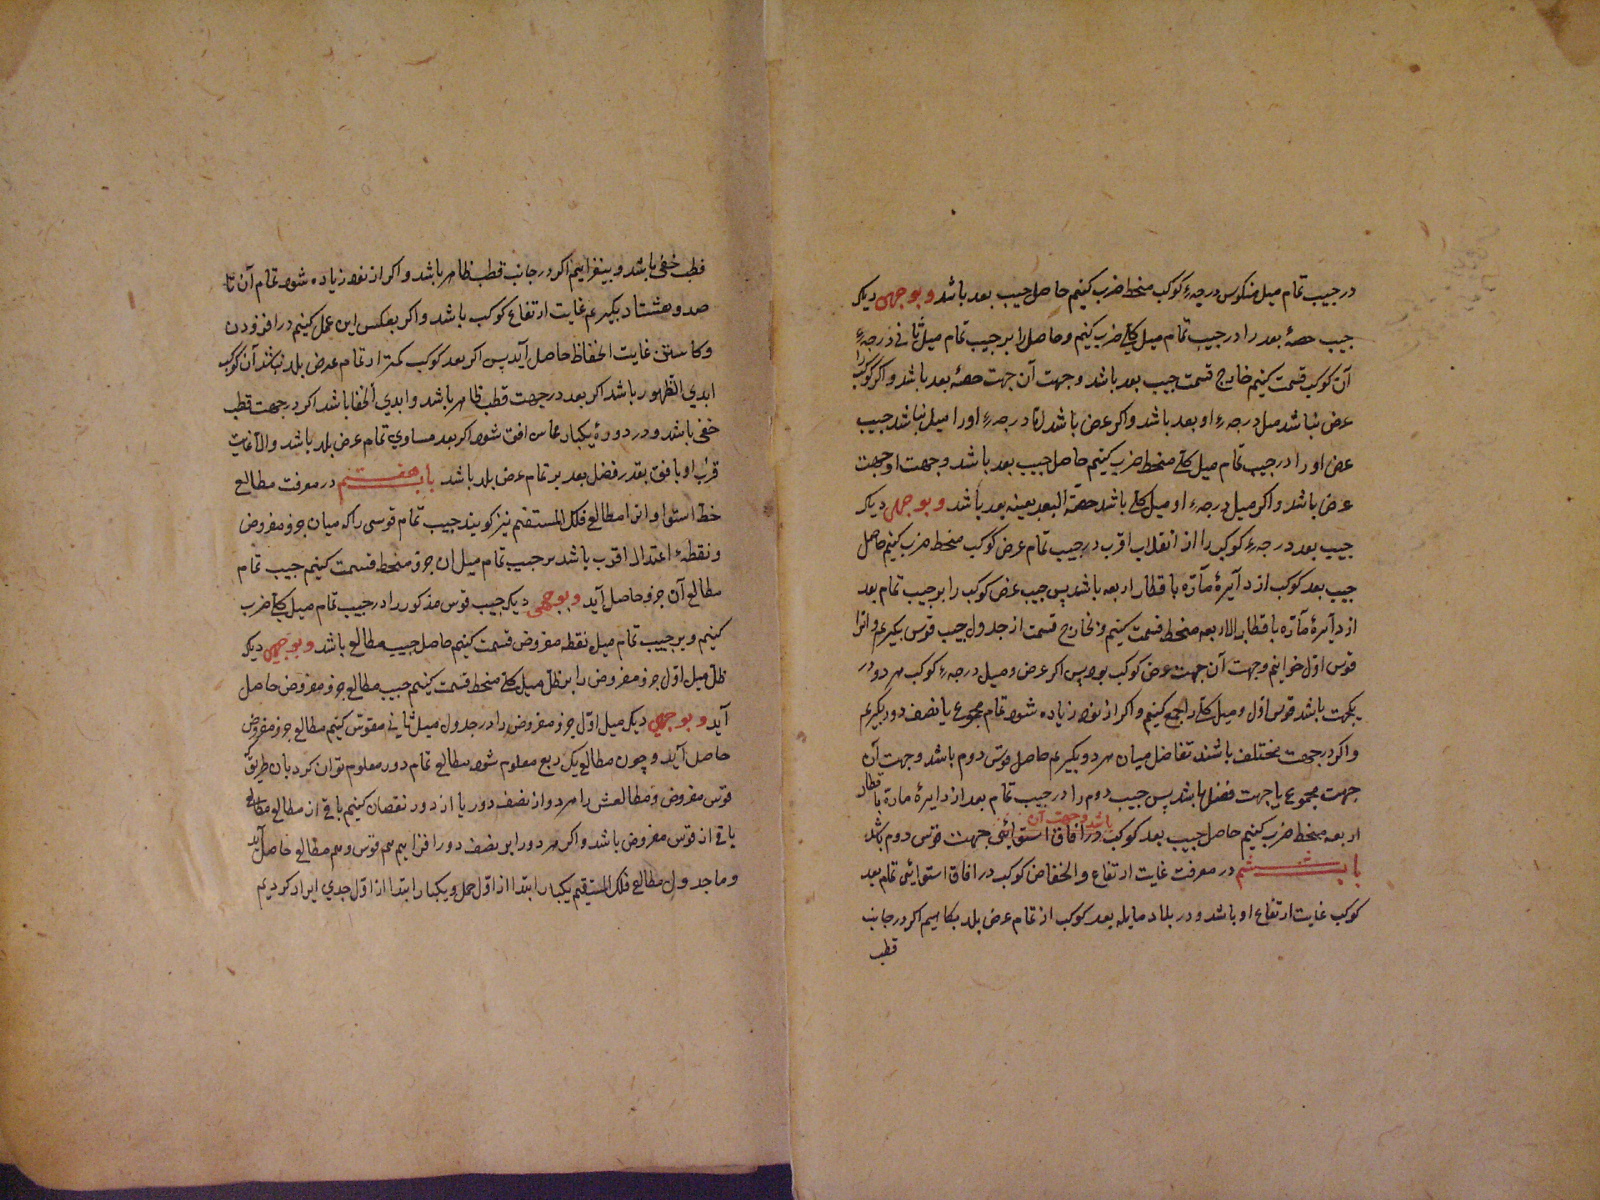 در جیب تمام میل منکوس درجهٔ کوکب منحط ضرب کنیم حاصل جیب بعد باشد و بوجهی دیکر
جیب حصهٔ بعد را در جیب تمام میل کلی ضرب کنیم و حاصل را بر جیب تمام میل ثانی درجهٔ
آن کوکب قسمت کنیم خارج قسمت جیب بعد باشد و جهت آن جهت حصهٔ بعد باشد و اکر کوکب را
عرض نباشد میل درجهٔ او بعد باشد و اکر عرض باشد اما درجهٔ او را میل نباشد جیب
عرض او را در جیب تمام میل کلی منحط ضرب کنیم حاصل جیب بعد باشد و جهت او جهت
عرض باشد و اکر میل درجهٔ او میل کلی باشد حصة البعد بعینه بعد باشد و بوجهی دیکر
جیب بعد درجهٔ کوکب را از انقلاب اقرب در جیب تمام عرض کوکب منحط ضرب کنیم حاصل
جیب بعد کوکب از دایرهٔ مارّه باقطار اربعه باشد پس جیب عرض کوکب را بر جیب تمام بعد
از دایرهٔ مارّه باقطار الاربعه منحط قسمت کنیم و خارج قسمت از جدول جیب قوس بکیریم و انرا
قوس اوّل خوانیم و جهت آن جهت عرض کوکب بود پس اکر عرض و میل درجهٔ کوکب هر دو در
یکجهت باشد قوس اوّل و میل کلی را جمع کنیم و اکر از نود زیاده شود تمام مجموع یا نصف دور بکیریم
و اکر در جهت مختلف باشند تفاضل میان هر دو بکیریم حاصل قوس دوم باشد و جهت آن
جهت مجموع یا جهت فضل باشد پس جیب دوم را در جیب تمام بعد از دایرهٔ مارة باقطار
اربعه منحط ضرب کنیم حاصل جیب بعد کوکب باشد و جهت آن در آفاق استوائی جهت قوس دوم باشد
باب ششم در معرفت غایت ارتفاع و انخفاض کوکب در افاق استوائی تمام بعد
کوکب غایت ارتفاع او باشد و در بلاد مایله بعد کوکب از تمام عرض بلد بکاهیم اکر در جانب
قطب
قطب خفی باشد و بیفزاییم اکر در جانب قطب ظاهر باشد و اکر از نود زیاده شود تمام آن تا
صد و هشتاد بکیریم غایت ارتفاع کوکب باشد و اکر بعکس این عمل کنیم در افزودن
و کاستن غایت انخفاظ حاصل آید پس اکر بعد کوکب کمتر از تمام عرض بلد نباشد آن کوکب
ابدی الظهور باشد اکر بعد در جهت قطب ظاهر باشد و ابدی الخفا باشد اکر در جهت قطب
خفی باشد و در دورهٔ یکبار مماس افق شود اکر بعد مساوی تمام عرض بلد باشد و الا غایت
قرب او بافق بقدر فضل بعد بر تمام عرض بلد باشد باب هفتم در معرفت مطالع
خط استوا و انرا مطالع فلک المستقیم نیز کویند جیب تمام قوسی را که میان جزو مفروض
و نقطهٔ اعتدال اقرب باشد بر جیب تمام میل ان جزو منحط قسمت کنیم جیب تمام
مطالع آن جزو حاصل آید و بوجهی دیکر جیب قوس مذکور را در جیب تمام میل کلی ضرب
کنیم و بر جیب تمام میل نقطه مفروض قسمت کنیم حاصل جیب مطالع باشد و بوجهی دیکر
ظل میل اوّل جزو مفروض را بر ظل میل کلی منحط قسمت کنیم جیب مطالع جزو مفروض حاصل
آید و بوجهی دیکر میل اوّل جزو مفروض را در جدول میل ثانی مقوس کنیم مطالع جزو مفروض
حاصل آید و چون مطالع یک ربع معلوم شود مطالع تمام دور معلوم توان کرد بان طریق
قوس مفروض و مطالعش را هر دو از نصف دور یا از دور نقصان کنیم باقی از مطالع مطالع
باقی از قوس مفروض باشد و اکر هر دو را بر نصف دور افزاییم هم قوس و هم مطالع حاصل آید
و ما جدول مطالع فلک المستقیم یکبار ابتدا از اوّل حمل و یکبار ابتدا از اوّل جدی ایراد کردیم